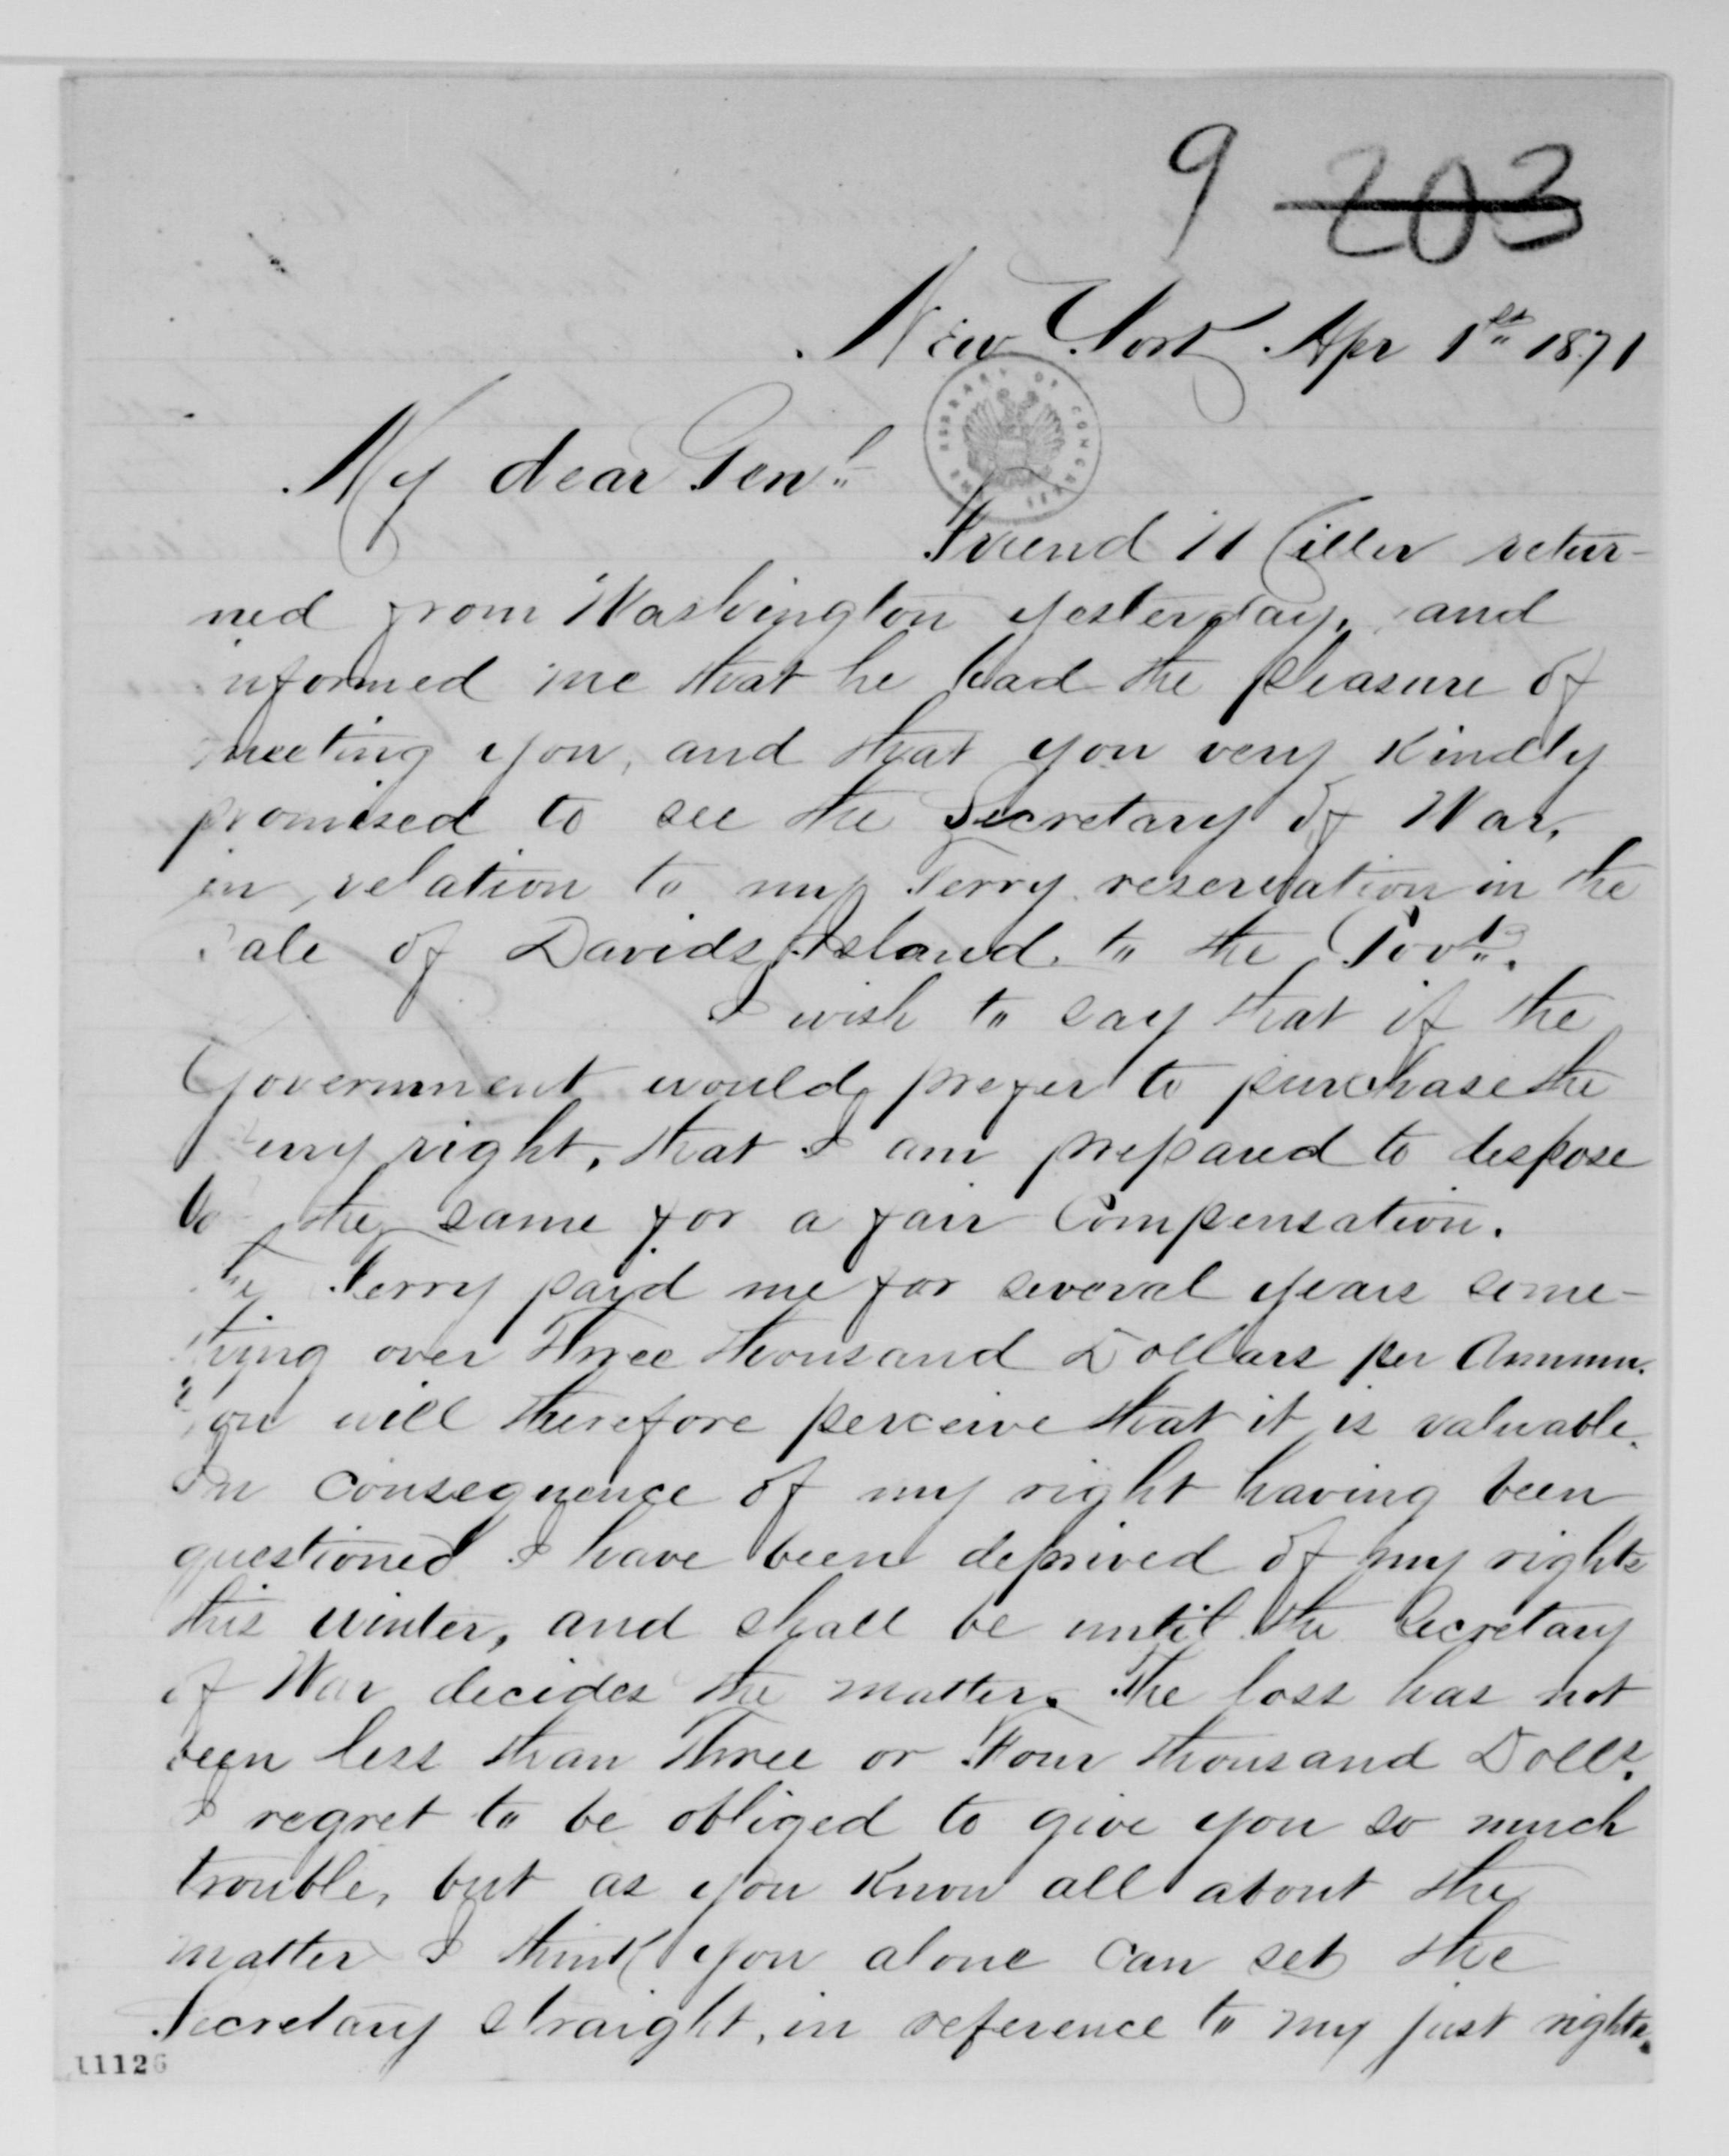 9 203
New York Apr 1st 1871
My dear Genl
Friend Hiller retur-
ned from Washington yesterday, and
informed me that he had the pleasure of
meeting you, and that you very kindly
promised to see the Secretary of War,
in relation to my Ferry reservation in the
Sale of Davids Island to the Govt.
I wish to say that if the
Government would prefer to purchase the
Ferry right, that I am prepared to dispose
of the same for a fair Compensation.
The Ferry paid me for several years some-
thing over Three thousand Dollars per Annum.
You will therefore perceive that it is valuable.
In consequence of my right having been
questioned I have been deprived of my rights
this winter, and shall be until the Secretary
of War decides the matter. The loss has not
been less than Three or Four thousand Dolls.
I regret to be obliged to give you so much
trouble, but as you know all about the
matter I think you alone can set the
Secretary straight, in reference to my just rights.
11126
LIBRARY OF CONGRESS